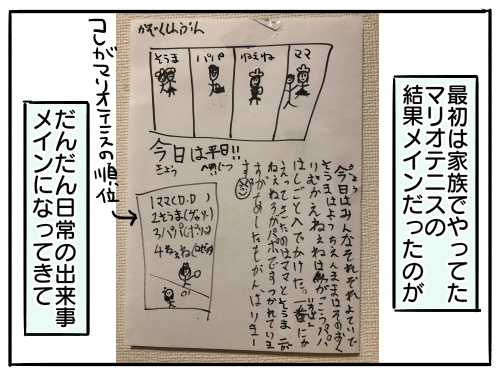 最初は家族でやってた
マリオテニスの
結果メインだったのが
だんだん日常の出来事
メインになってきて
これがマリオテニスの順位
かぞくしんぶん
そうま
パパ
ねぇね
ママ
今日は平日!!
きょう
へいじつ
1ママ(D.D)
2そうま(
3パパ(
4ねぇね(ロゼッタ)
きょう
今日はみんなそれぞれよていで
そうまはようちえんままはそのおく
りむかえねぇねは
がっこうパパ
はしごとへでかけた。一番にか
えってきたのはママとそうま
ねぇね
パパ
すがあしたもがんばりまー
す